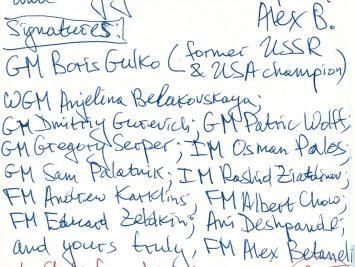 and
Alex B.
Signatures:
GM Boris Gulko (former USSR & USA champion)
WGM Anjelina Belakovskaya;
GM Dmitriy Gurevich; GM Patric Wolff;
GM Gregory Serper; IM Osman Palos;
GM Sam Palatnik; IM Rashid Ziatdinov;
FM Andrew Karklins; FM Albert Chow;
FM Eduard Zeldkin; Ani Deshpande;
and yours truly, FM Alex Betaneli